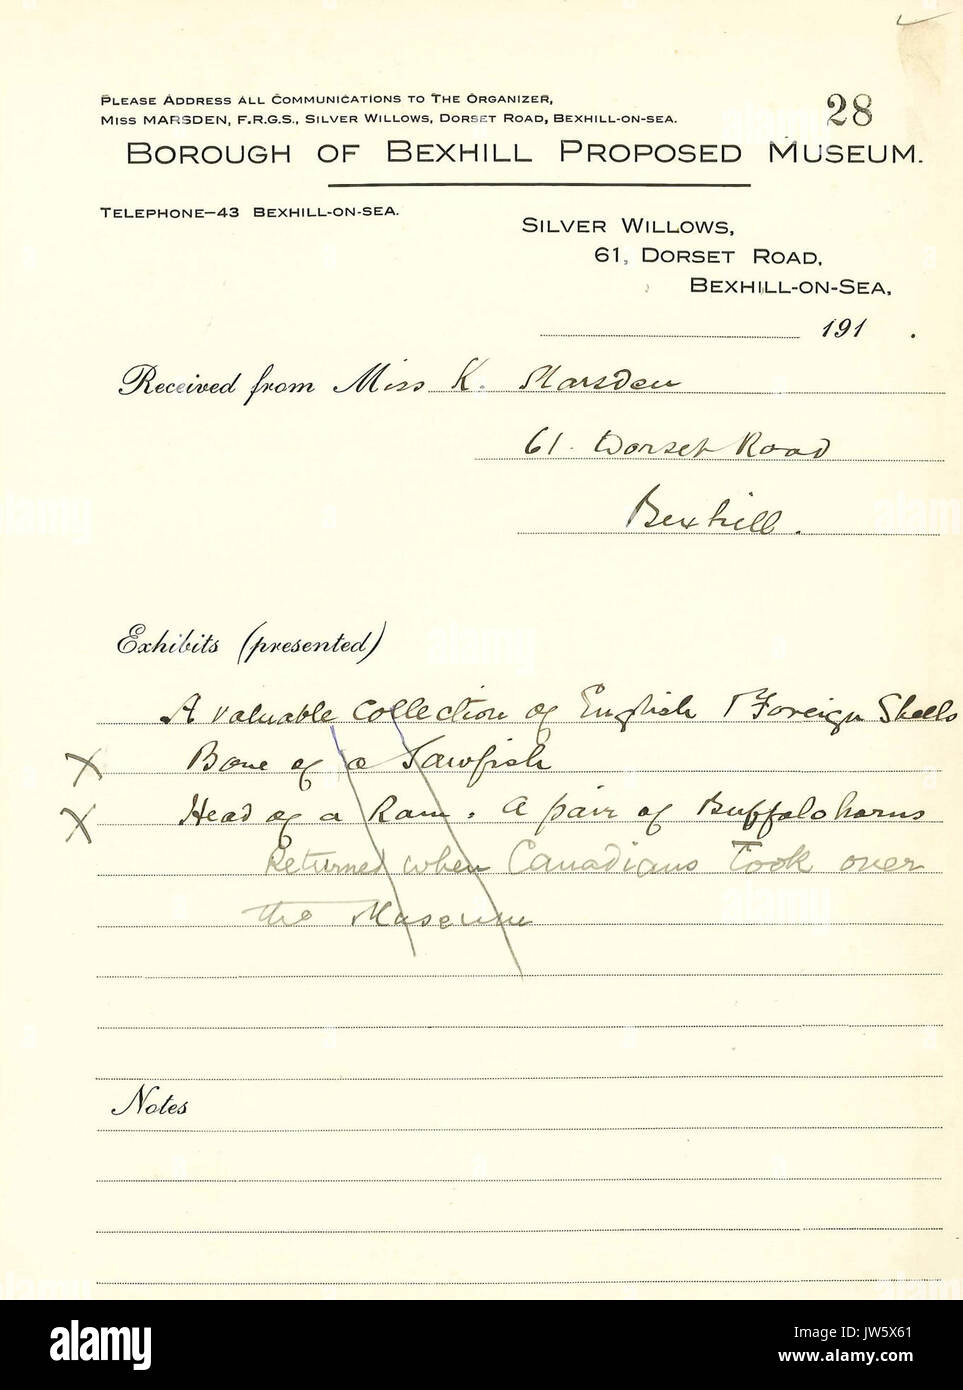 PLEASE ADDRESS ALL COMMUNICATIONS TO THE ORGANIZER,
MISS MARSDEN, F.R.G.S., SILVER WILLOWS, DORSET ROAD, BEXHILL-ON-SEA.
28
BOROUGH OF BEXHILL PROPOSED MUSEUM.
TELEPHONE—43 BEXHILL-ON-SEA.
SILVER WILLOWS,
61, DORSET ROAD,
BEXHILL-ON-SEA,
191 .
Received from Miss K. Marsden
61. Dorset Road
Bexhill.
Exhibits (presented)
A valuable collection of English & Foreign Shells
X Bone of a Sawfish
X Head of a Ram. A pair of Buffalo horns
Returned when Canadians took over
the Museum
Notes
alamy
Image ID: JW5X61
www.alamy.com